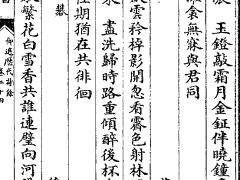 玉鐙敲霜月金鉦伴曉鐘
衾無寐與君同
雲衿掉影開忽看霽色射林
盡洗歸時路重傾醉後杯
期猶在共徘徊
繁花白雪香共誰連璧向河
御選歷代詩餘 卷二十四